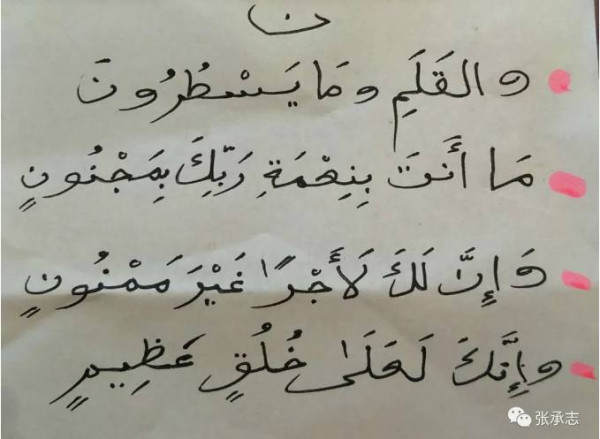 ن
والقَلَمِ ومَا يَسْطُرُونَ
مَا أَنتَ بِنِعْمَةِ رَبِّكَ بِمَجْنُونٍ
وَإِنَّ لَكَ لَأَجْرًا غَيْرَ مَمْنُونٍ
وإِنَّكَ لَعَلَىٰ خُلُقٍ عَظِيمٍ
张承志